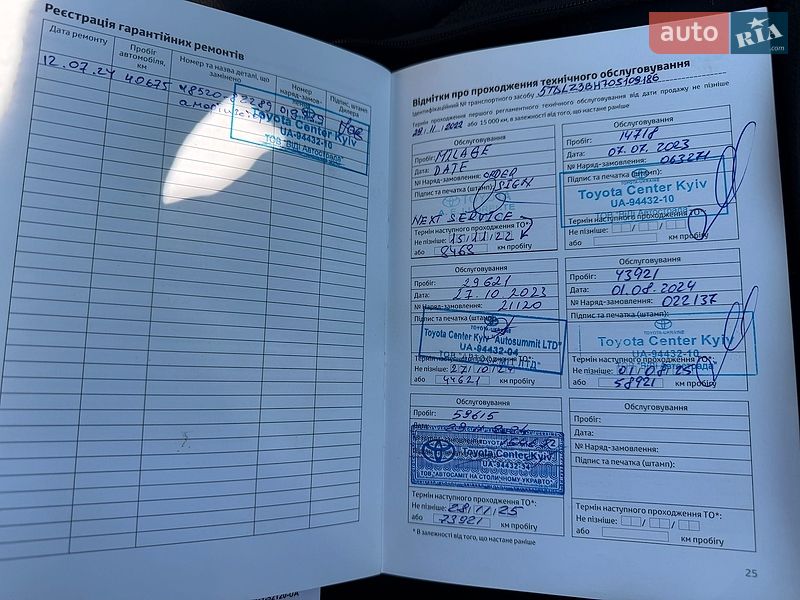 auto RIA.com
Реєстрація гарантійних ремонтів
Дата ремонту
Пробіг автомобіля, км
Номер та назва деталі, що замінено
Номер наряд-замовлення
Підпис, штамп Дилера
12.07.24 40675
Toyota Center Kyiv
UA-94432-10
ТОВ "ВІДІ Автострада"
Відмітки про проходження технічного обслуговування
Ідентифікаційний № транспортного засобу
Термін проходження першого регламентного технічного обслуговування від дати продажу не пізніше
29.11.2022 або 15 000 км, в залежності від того, що настане раніше
Обслуговування
Пробіг: MILAGE
Дата: DATE
№ Наряд-замовлення: ORDER
Підпис та печатка (штамп): SIGN
NEXT SERVICE
Термін наступного проходження ТО*:
Не пізніше: 15/11/22
або 8468 км пробігу
Обслуговування
Пробіг: 14718
Дата: 07.07.2023
№ Наряд-замовлення: 063271
Підпис та печатка (штамп):
Toyota Center Kyiv
UA-94432-10
Термін наступного проходження ТО*:
Не пізніше:
або км пробігу
Обслуговування
Пробіг: 29621
Дата: 27.10.2023
№ Наряд-замовлення: 21120
Підпис та печатка (штамп):
TOYOTA-UKRAINE
Toyota Center Kyiv "Autosummit LTD"
UA-94432-04
Термін наступного проходження ТО*:
Не пізніше: 27/10/24
або 44621 км пробігу
Обслуговування
Пробіг: 43921
Дата: 01.08.2024
№ Наряд-замовлення: 022137
Підпис та печатка (штамп):
TOYOTA-UKRAINE
Toyota Center Kyiv
UA-94432-10
Термін наступного проходження ТО*:
Не пізніше: 01/08/25
або 58921 км пробігу
Обслуговування
Пробіг: 59615
Дата:
Toyota Center Kyiv
ТОВ "АВТОСАМІТ НА СТОЛИЧНОМУ УКРАВТО"
Термін наступного проходження ТО*:
Не пізніше: 28/11/25
або 73921 км пробігу
Обслуговування
Пробіг:
Дата:
№ Наряд-замовлення:
Підпис та печатка (штамп):
Термін наступного проходження ТО*:
Не пізніше:
або км пробігу
* В залежності від того, що настане раніше
25